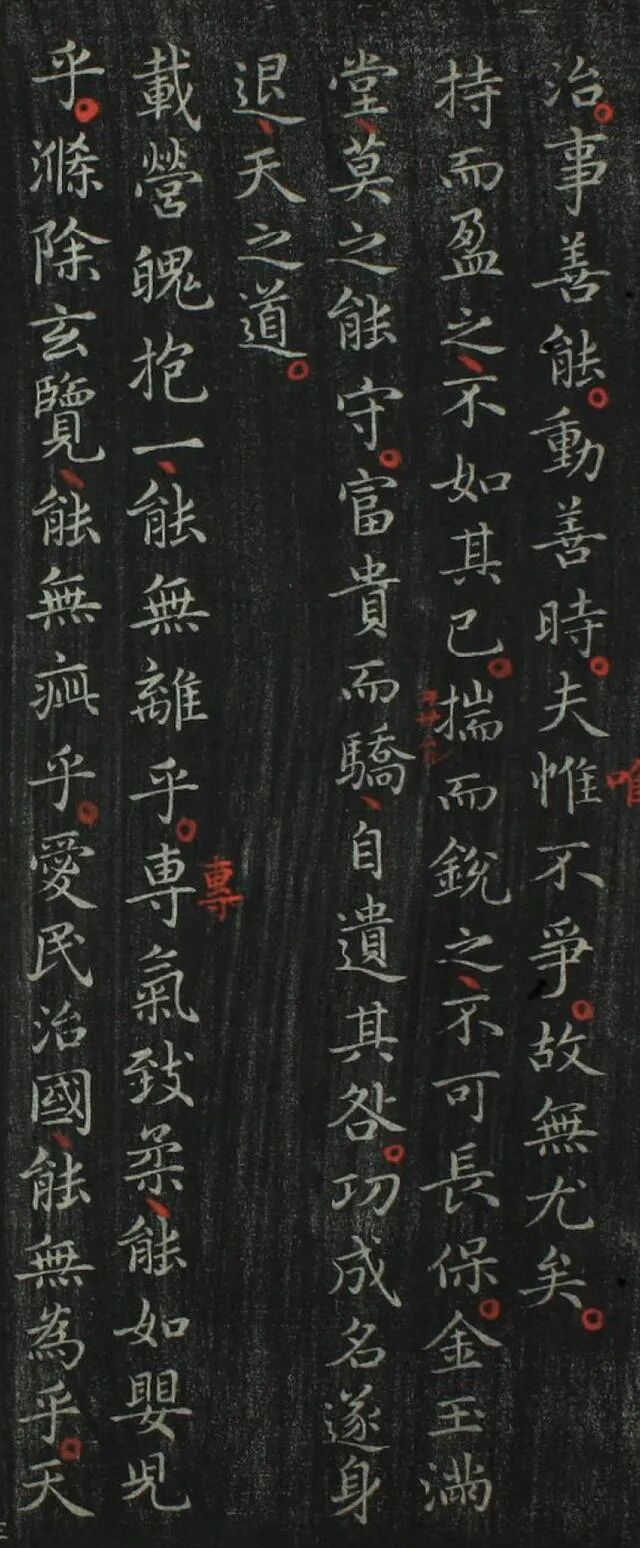 治。事善能。動善時。夫惟不爭。故無尤矣。
唯
持而盈之、不如其已。揣而銳之、不可長保。金玉滿
堂、莫之能守。富貴而驕、自遺其咎。功成名遂身
退、天之道。
載營魄抱一、能無離乎。専氣致柔、能如嬰児
專
乎。滌除玄覽、能無疵乎。愛民治國、能無為乎。天